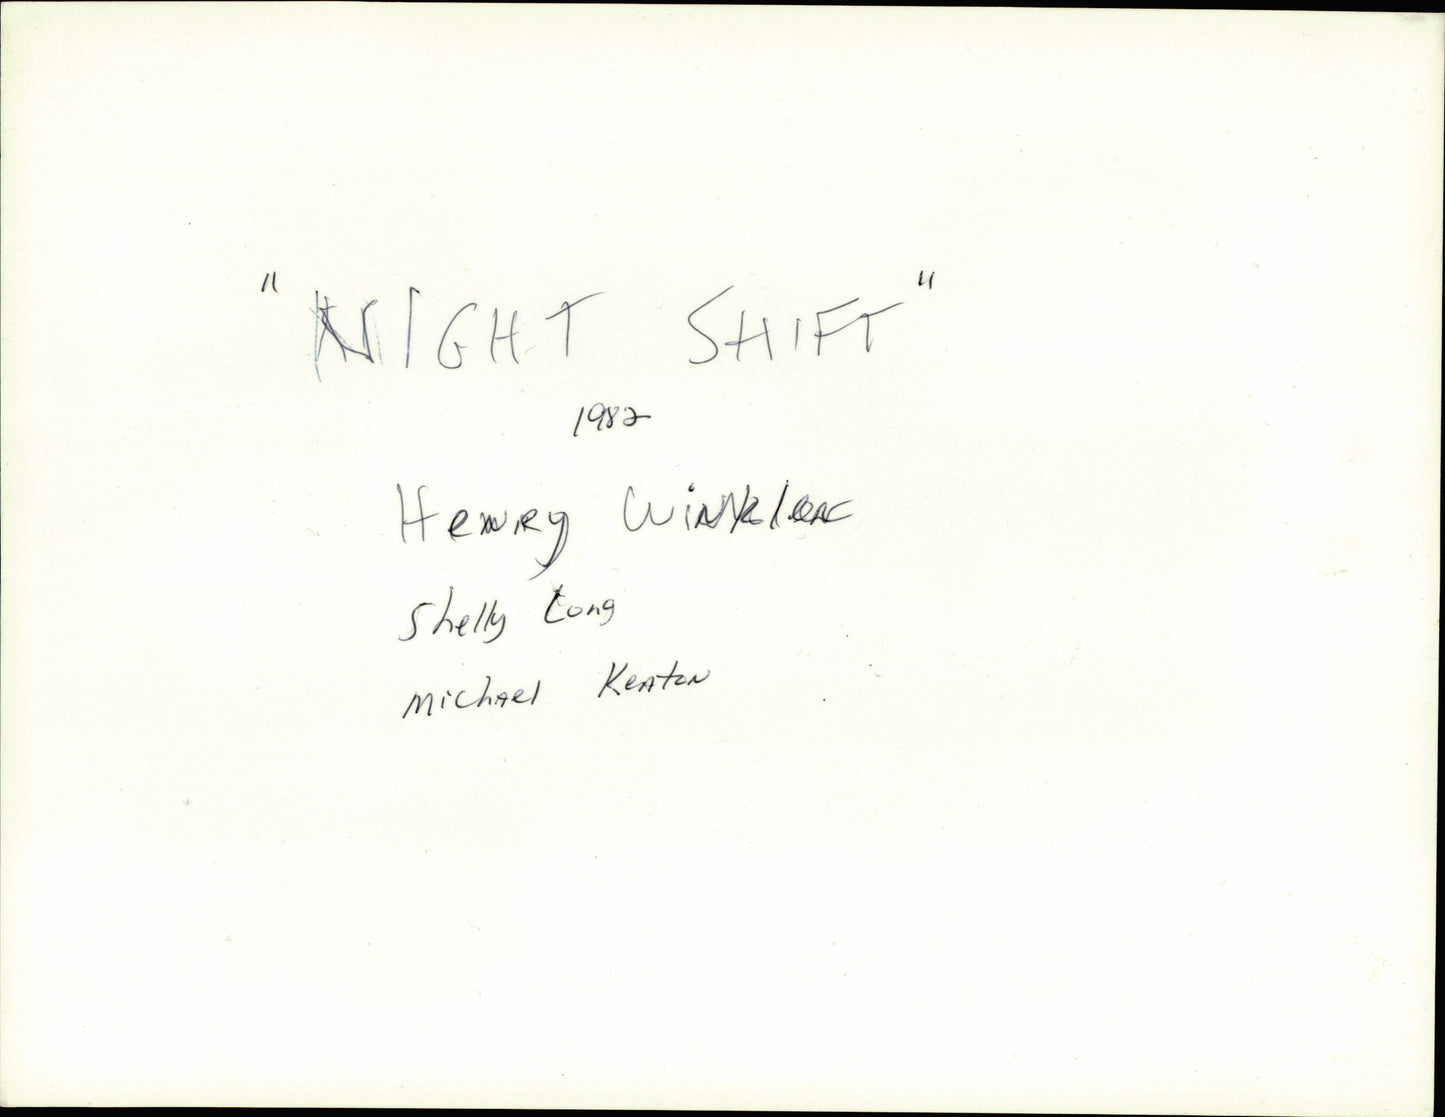 "NIGHT SHIFT"
1982
Henry Winkler
Shelly Long
Michael Keaton